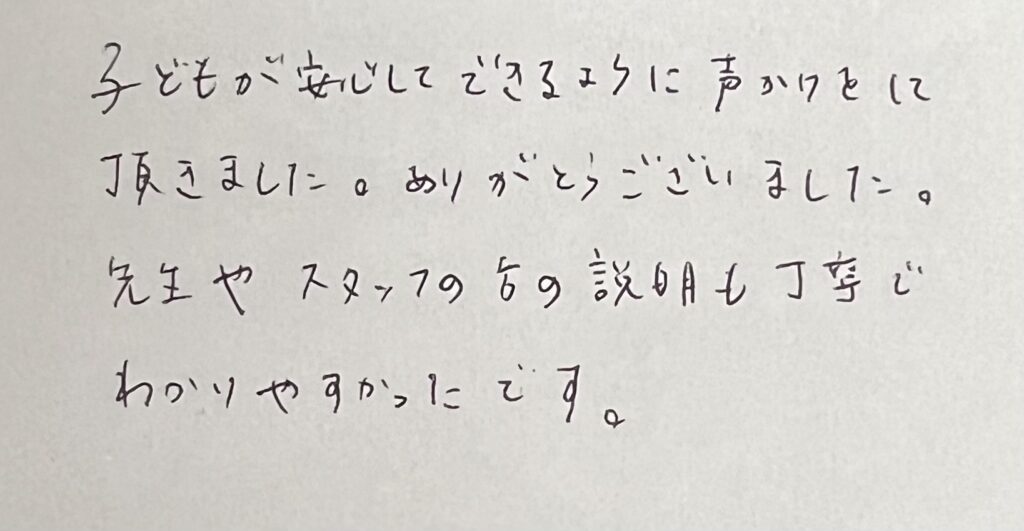 子どもが安心してできるように声かけをして
頂きました。ありがとうございました。
先生やスタッフの方の説明も丁寧で
わかりやすかったです。